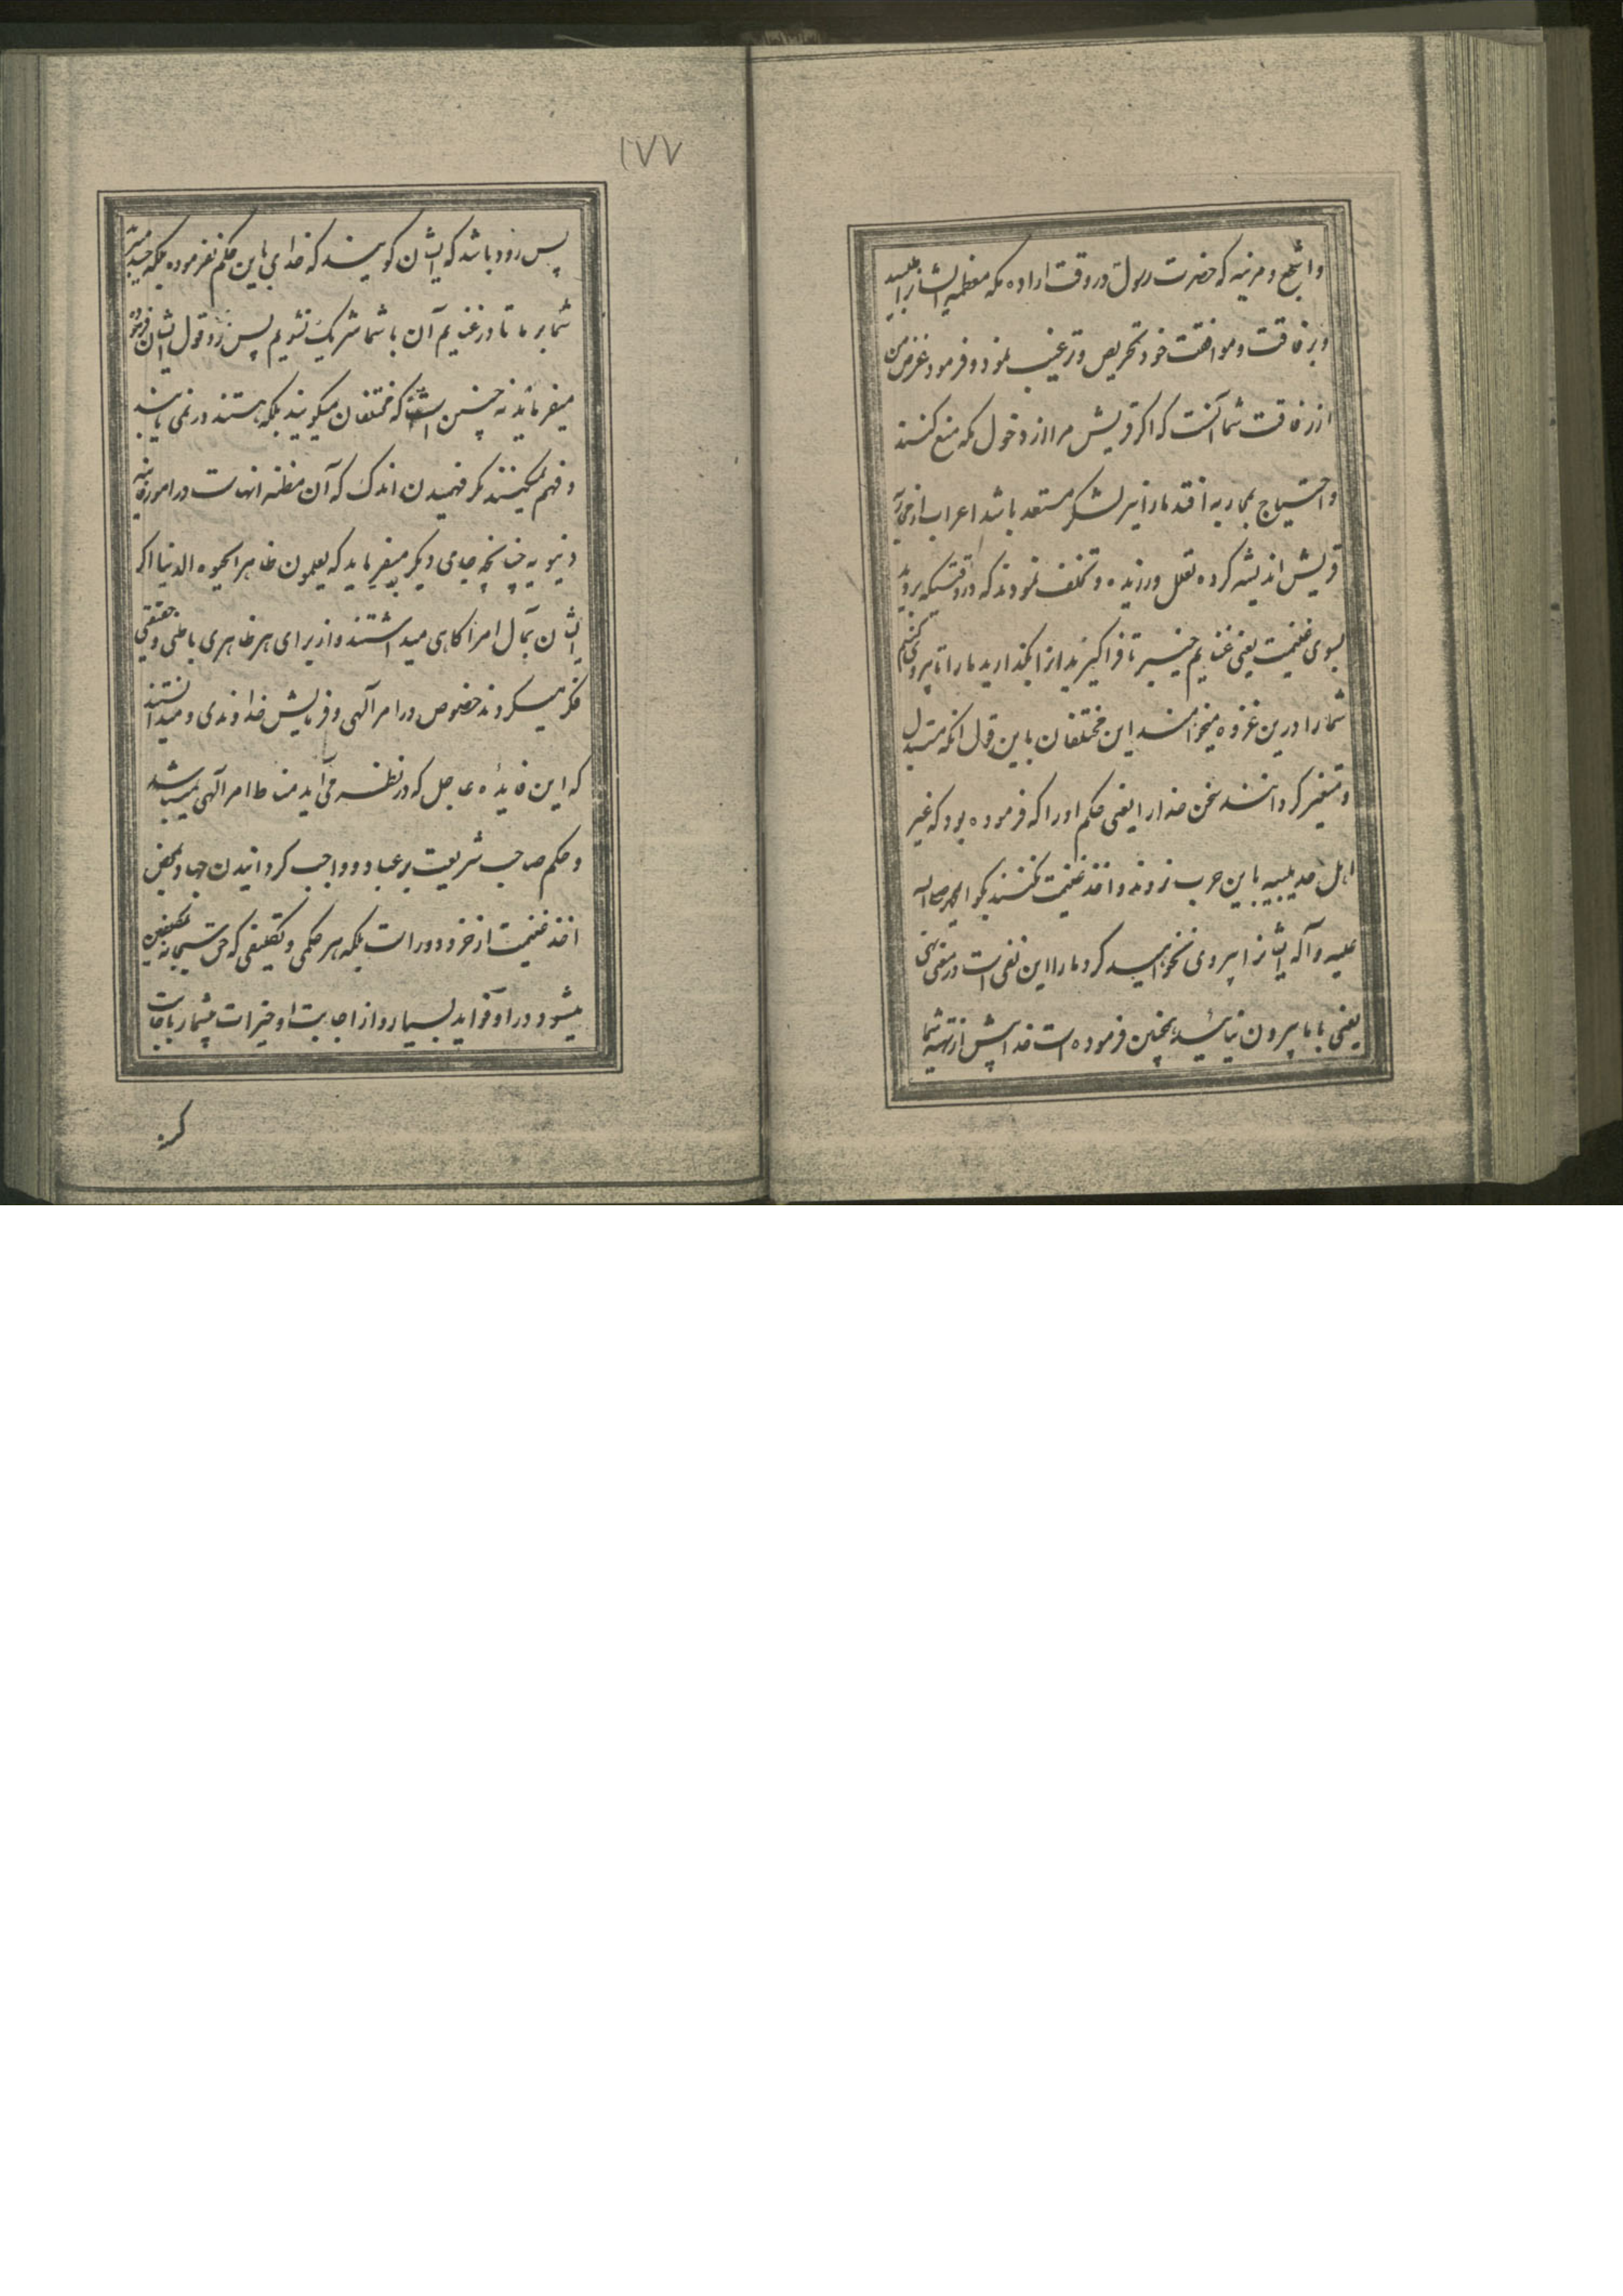 واشجع و مزنیه که حضرت رسول در وقت اراده مکه معظمه ایشانرا طلبید
و برفاقت و موافقت خود تحریص و ترغیب نمود و فرمود غرض من
از رفاقت شما آنست که اکر قریش مرا از دخول مکه منع کنند
و احتیاج بمحاربه افتد ما را نیز لشکر مستعد باشد اعراب از محاربه
قریش اندیشه کرده تعلل ورزیده و تخلف نمودند که در وقتیکه بروید
بسوی غنیمت یعنی غنایم خیبر تا فراکیرید انرا بکذارید ما را تا پیروی کنیم
شما را درین غزوه میخواهند این مختلفان باین قول انکه متبدل
و متغیر کردانند سخن خدا را یعنی حکم او را که فرموده بود که غیر
اهل حدیبیه باین حرب نروند و اخذ غنیمت نکنند بکو ای محمد صلی الله
علیه و آله ایشانرا پیروی نخواهید کرد ما را این نفی است در معنی نهی
یعنی با ما بیرون نیائید همچنین فرموده است خدا پیش از تهیه شما
۱۷۷
پس زود باشد که ایشان کویند که خدای باین حکم نفرموده بلکه حسد میبرید
شما بر ما تا در غنایم آن با شما شریک نشویم پس رد قول ایشان فرموده
میفرماید نه چنین است که مختلفان میکویند بلکه هستند در نمی یابند
و فهم نمیکنند مکر فهمیدن اندک که آن مظنه انهاست در امور فانیه
دنیویه چنانچه جای دیکر میفرماید که یعلمون ظاهرا الحیوه الدنیا اکر
ایشان بمآل امر آکاهی میداشتند و از برای هر ظاهری باطنی و حقیقتی
فکر میکردند خصوص در امر آلهی و فرمایش خداوندی و میدانستند
که این فایدهٔ عاجل که در نظر می آید مناط امر آلهی نمیباشد
و حکم صاحب شریعت بر عباد و واجب کردانیدن جهاد بمحض
اخذ غنیمت از خرد دور است بلکه هر حکمی و تکلیفی که حق سبحانه بمکلفین
میشود در او فواید بسیار و از اجابت او خیرات بیشمار باجابت
کر